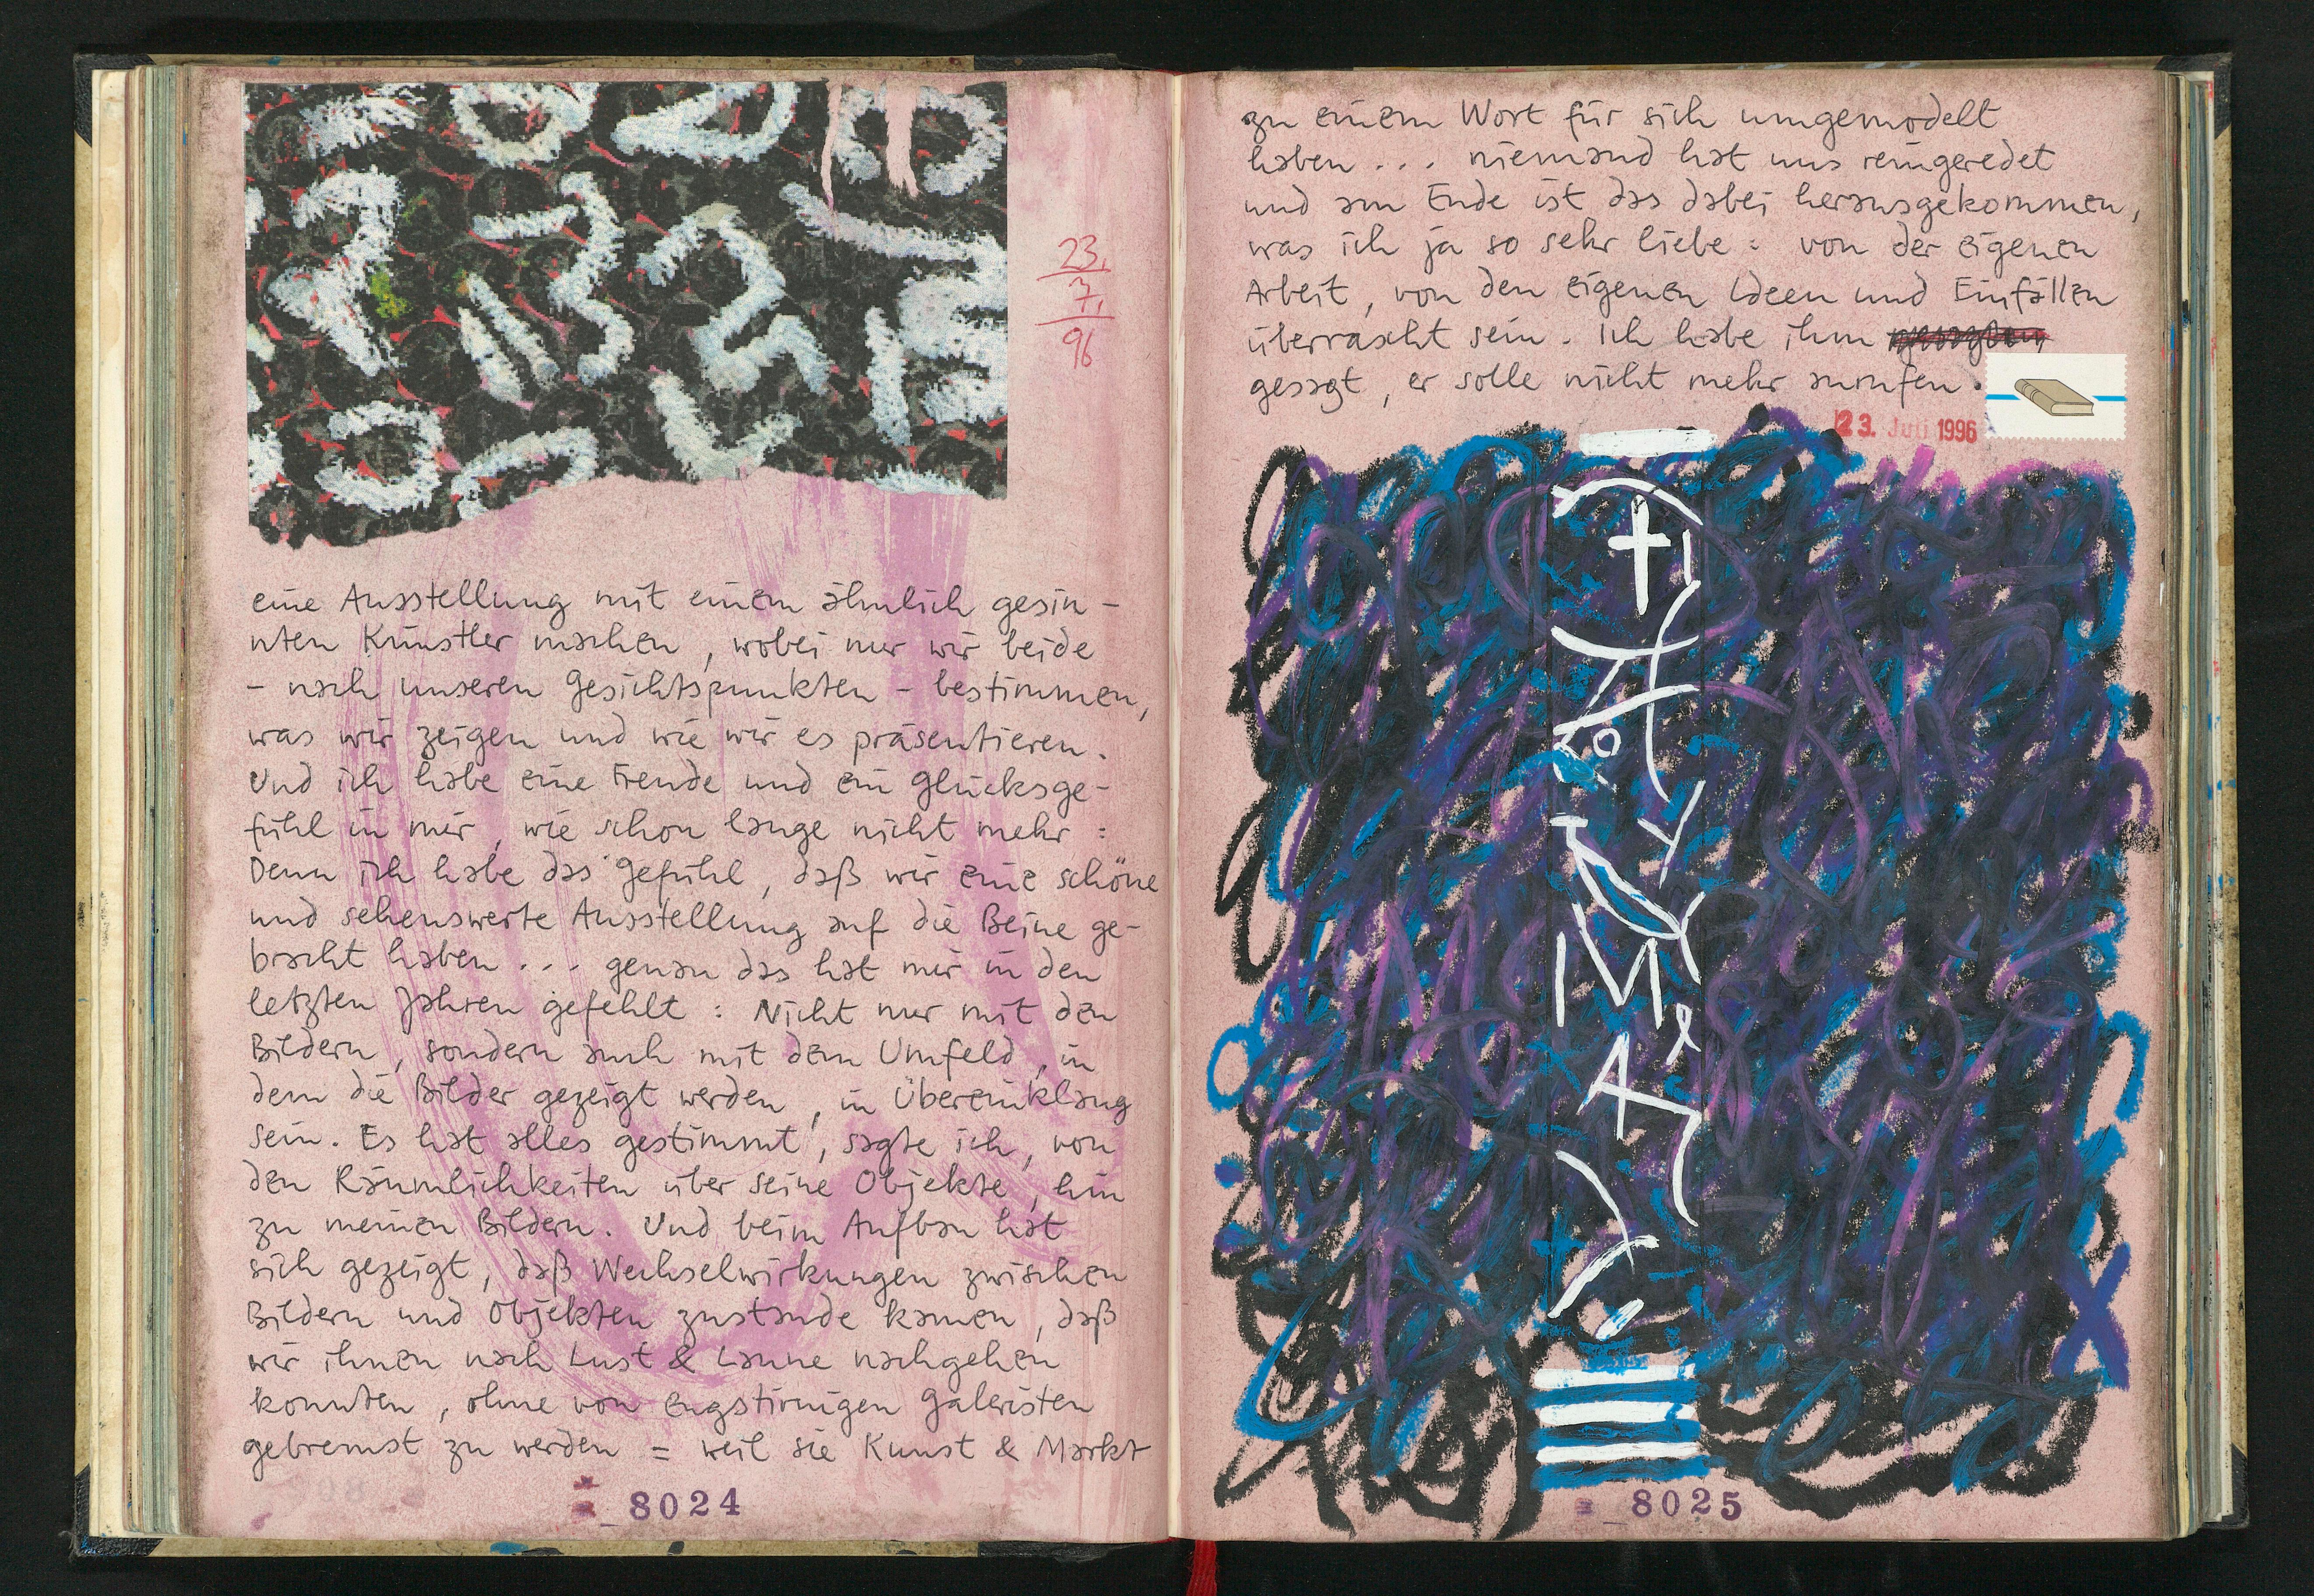 23.
7.
96
eine Ausstellung mit einem ähnlich gesin-
nten Künstler machen, wobei nur wir beide
- nach unseren Gesichtspunkten - bestimmen,
was wir zeigen und wie wir es präsentieren.
Und ich habe eine Freude und ein Glücksge-
fühl in mir, wie schon lange nicht mehr :
Denn ich habe das Gefühl, daß wir eine schöne
und sehenswerte Ausstellung auf die Beine ge-
bracht haben ... genau das hat mir in den
letzten Jahren gefehlt : Nicht nur mit den
Bildern, sondern auch mit dem Umfeld, in
dem die Bilder gezeigt werden, in Übereinklang
sein. Es hat alles gestimmt, sagte ich, von
den Räumlichkeiten über seine Objekte, hin
zu meinen Bildern. Und beim Aufbau hat
sich gezeigt, daß Wechselwirkungen zwischen
Bildern und Objekten zustande kamen, daß
wir ihnen nach Lust & Laune nachgehen
konnten, ohne von engstirnigen Galeristen
gebremst zu werden = weil sie Kunst & Markt
8024
zu einem Wort für sich umgemodelt
haben ... niemand hat uns reingeredet
und am Ende ist das dabei herausgekommen,
was ich ja so sehr liebe : von der eigenen
Arbeit, von den eigenen Ideen und Einfällen
überrascht sein. Ich habe ihm
gesagt, er solle nicht mehr anrufen.
23. Juli 1996
8025